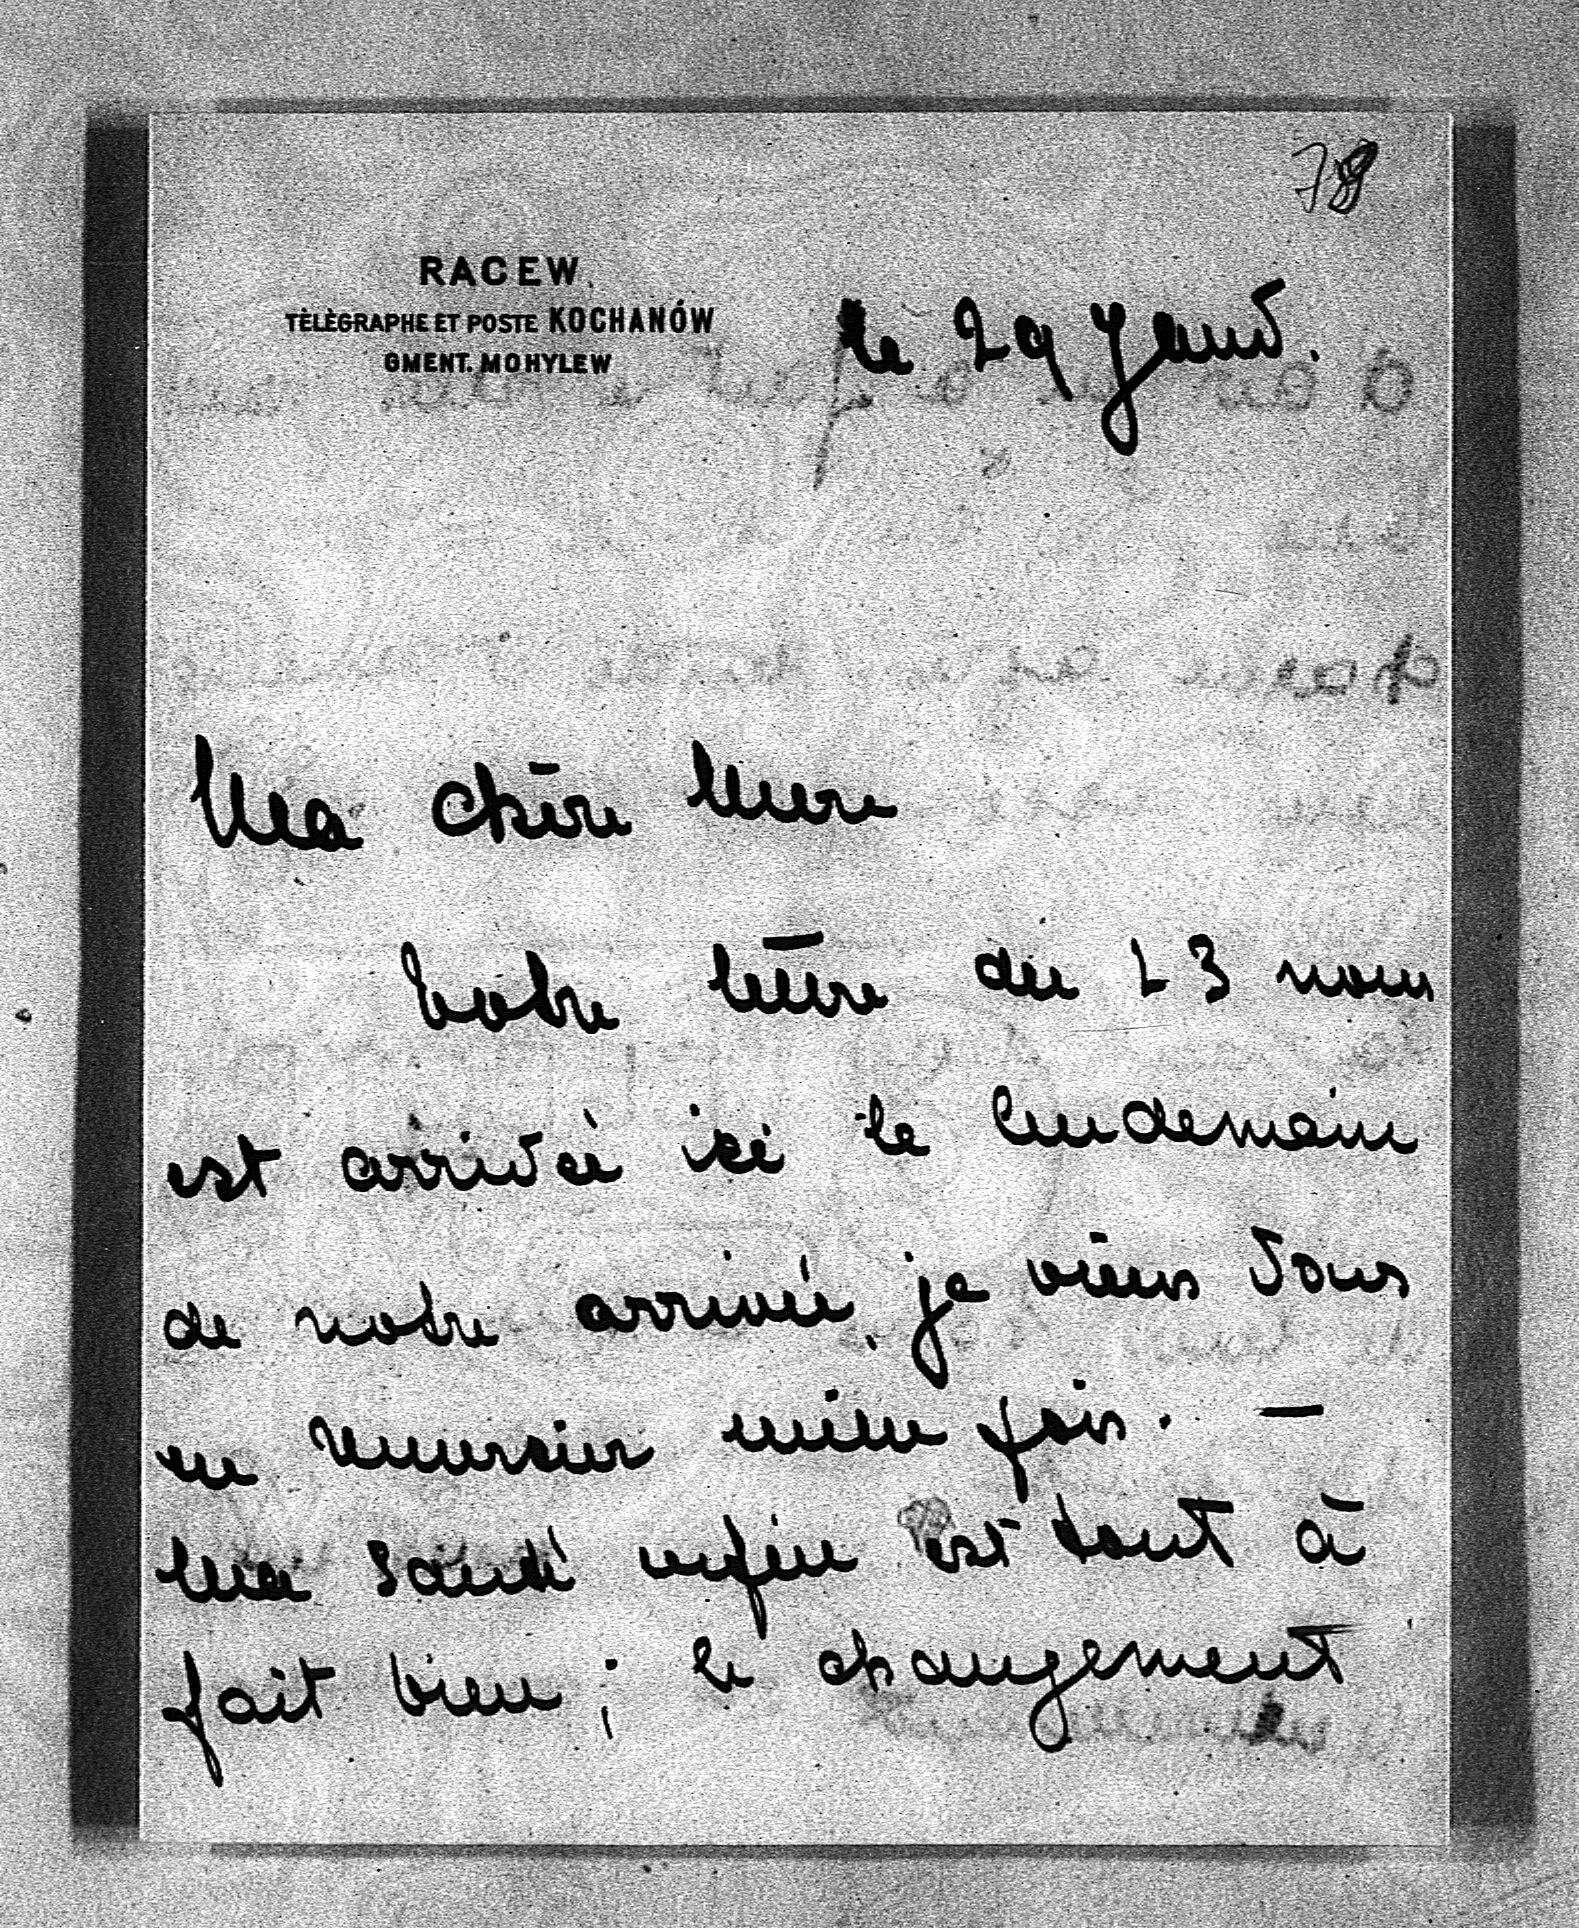 78
RACEW.
TÈLÈGRAPHE ET POSTE KOCHANÓW
GMENT. MOHYLEW
le 29 Janv.
Ma chère Mere
Votre lettre du 23 nous
est arrivée ici le lendemain
de notre arrivée, je viens Vous
en remercier mille fois. —
Ma santé enfin est tout à
fait bien; le changement